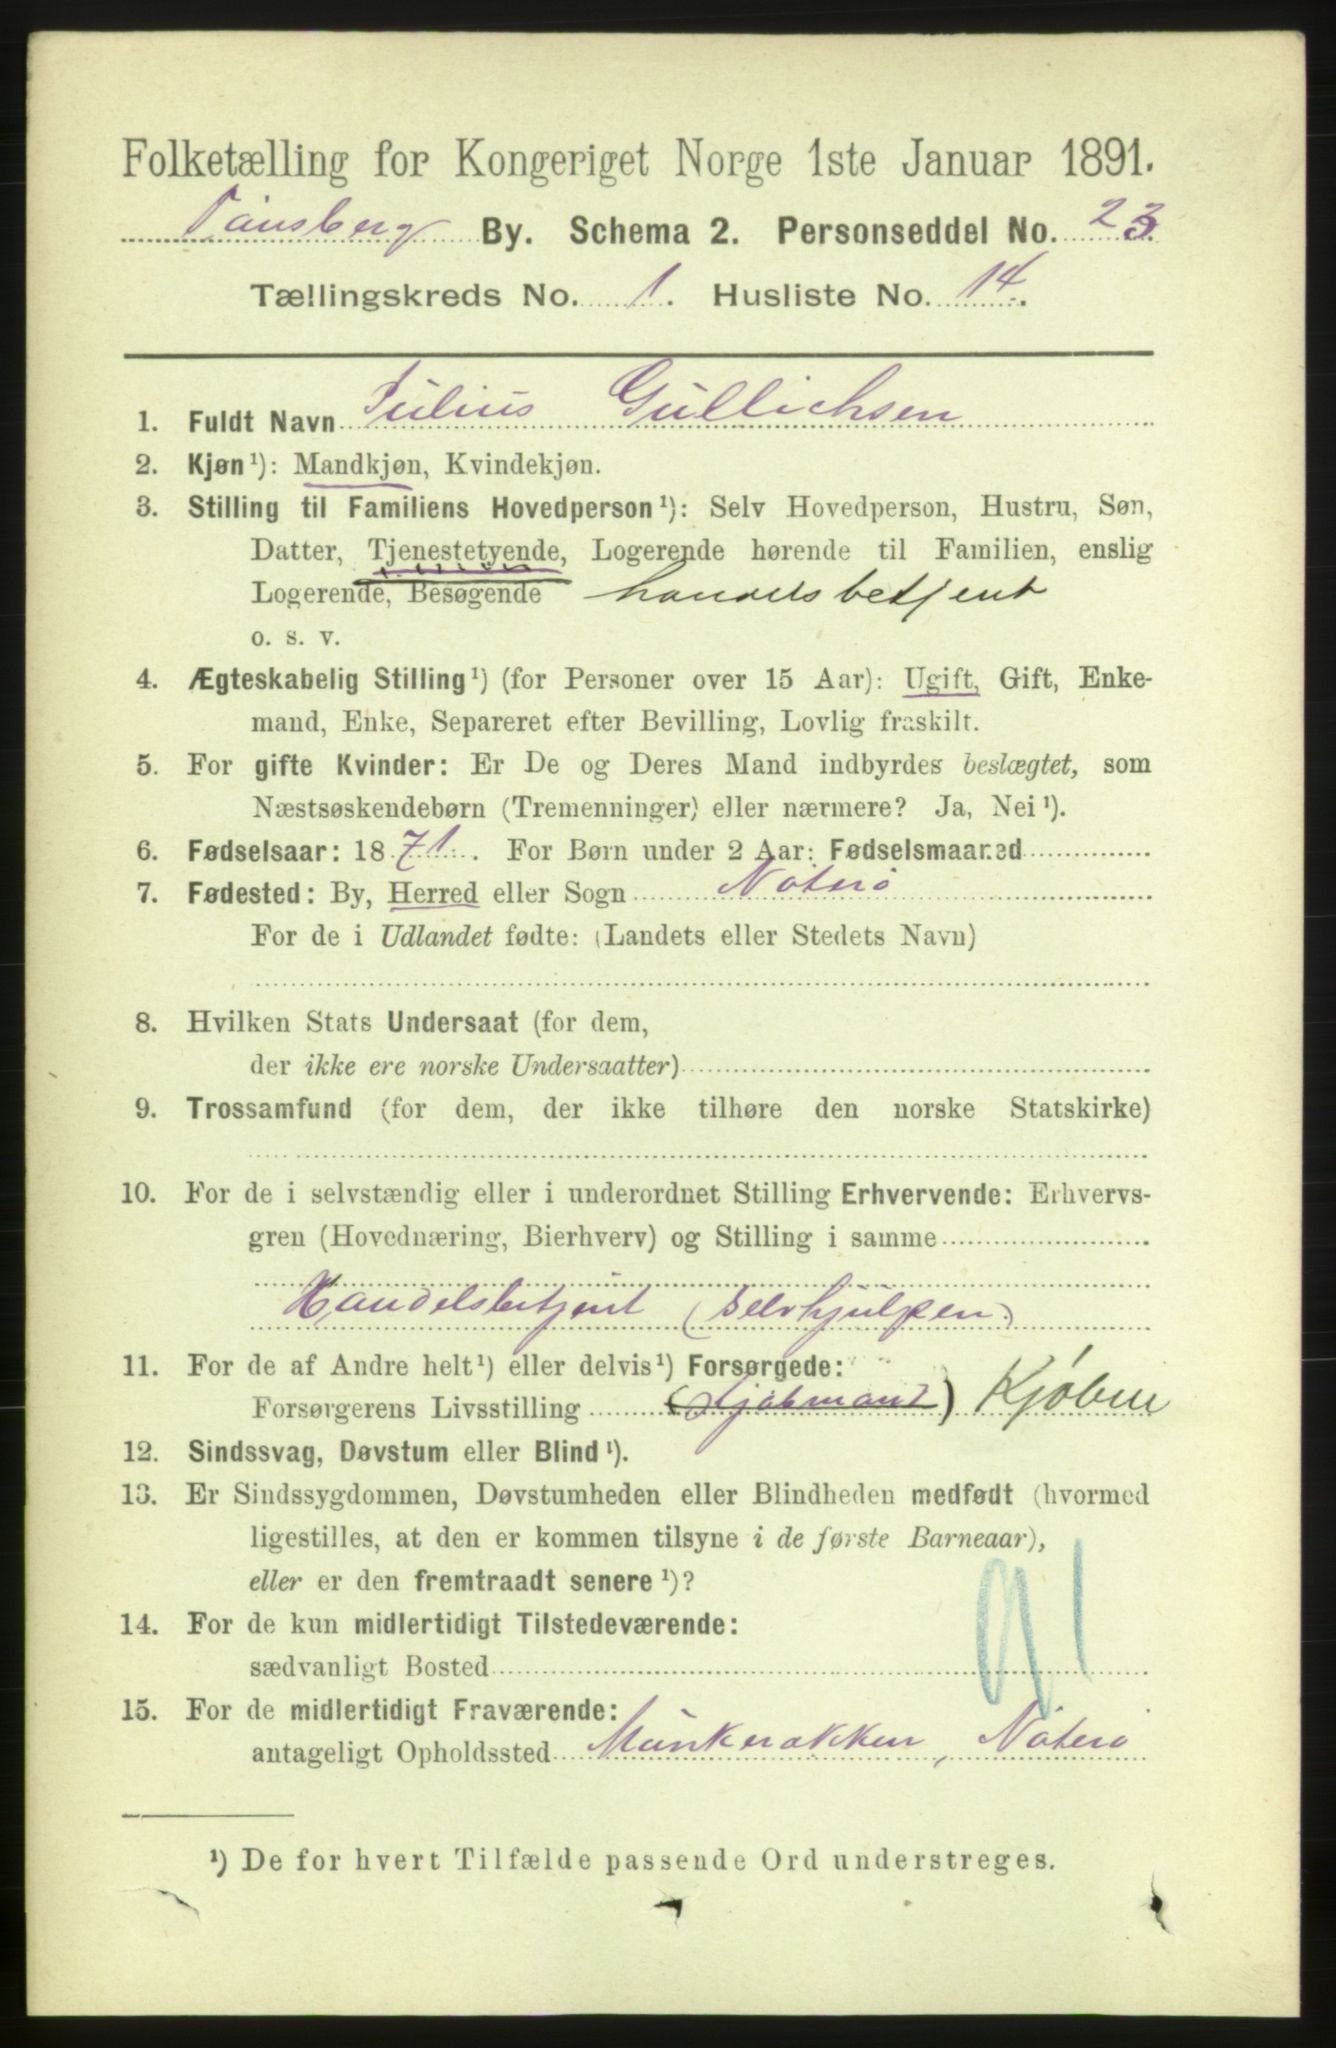 Folketælling for Kongeriget Norge 1ste Januar 1891.
Tönsberg By. Schema 2. Personseddel No. 23.
Tællingskreds No. 1. Husliste No. 14.
1. Fuldt Navn Julius Gullichsen
2. Kjøn ¹): Mandkjøn, Kvindekjøn.
3. Stilling til Familiens Hovedperson ¹): Selv Hovedperson, Hustru, Søn,
Datter, Tjenestetyende, Logerende hørende til Familien, enslig
Logerende, Besøgende handelsbetjent
o. s. v.
4. Ægteskabelig Stilling ¹) (for Personer over 15 Aar): Ugift, Gift, Enke-
mand, Enke, Separeret efter Bevilling, Lovlig fraskilt.
5. For gifte Kvinder: Er De og Deres Mand indbyrdes beslægtet, som
Næstsøskendebørn (Tremenninger) eller nærmere? Ja, Nei ¹).
6. Fødselsaar: 1871. For Børn under 2 Aar: Fødselsmaaned
7. Fødested: By, Herred eller Sogn Nøterø
For de i Udlandet fødte: (Landets eller Stedets Navn)
8. Hvilken Stats Undersaat (for dem,
der ikke ere norske Undersaatter)
9. Trossamfund (for dem, der ikke tilhøre den norske Statskirke)
10. For de i selvstændig eller i underordnet Stilling Erhvervende: Erhvervs-
gren (Hovednæring, Bierhverv) og Stilling i samme
Handelsbetjent (Selvhjulpen)
11. For de af Andre helt ¹) eller delvis ¹) Forsørgede:
Forsørgerens Livsstilling (Kjøbmand) Kjøbm
12. Sindssvag, Døvstum eller Blind ¹).
13. Er Sindssygdommen, Døvstumheden eller Blindheden medfødt (hvormed
ligestilles, at den er kommen tilsyne i de første Barneaar),
eller er den fremtraadt senere ¹)?
14. For de kun midlertidigt Tilstedeværende:
sædvanligt Bosted
91
15. For de midlertidigt Fraværende:
antageligt Opholdssted Munkerøkken, Nøterø
¹) De for hvert Tilfælde passende Ord understreges.